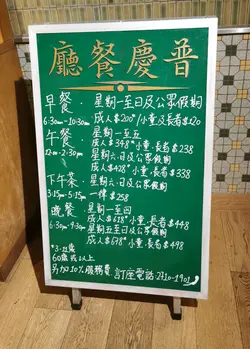 廳餐慶普
早餐・星期一至日及公眾假期
6:30am-10:30am 成人$200*小童及長者$120
午餐・星期一至五
12nn-2:30pm 成人$348*小童、長者$238
星期六、日及公眾假期
成人$428*小童、長者$338
下午茶・星期六、日及公眾假期
3:15pm-5:15pm 一律$258
晚餐 星期一至四
6:30pm-9:30pm 成人$618*小童、長者$448
星期五至日及公眾假期
成人$678*小童、長者$498
*3-11歲
60歲或以上
另加10%服務費 訂座電話:2710-1901